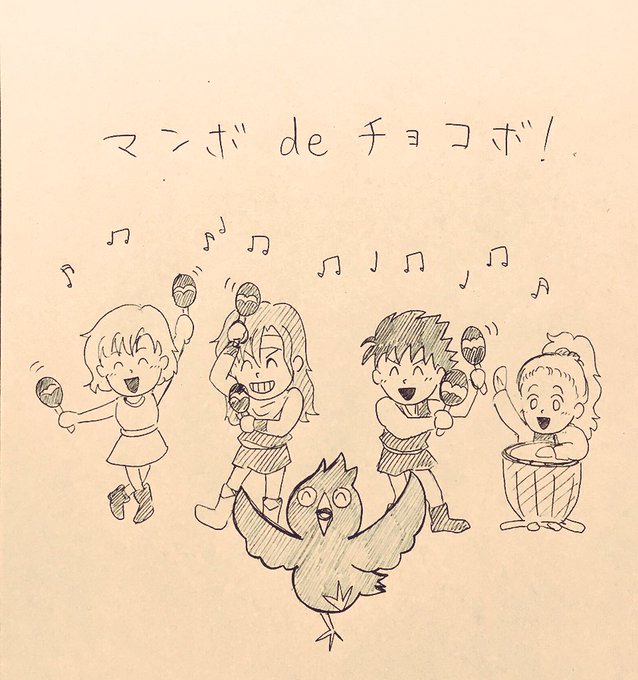 マンボ de チョコボ!